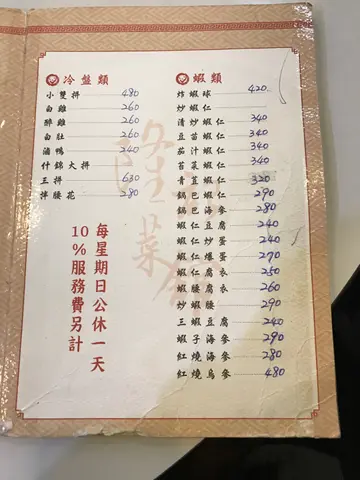 冷盤類
小雙拼 480
白雞 260
醉雞 260
白肚 260
滷鴨 240
什錦大拼
三拼 630
拌腰花 280
每星期日公休一天
10%服務費另計
蝦類
炸蝦球 420
炒蝦仁
清炒蝦仁 340
豆苗蝦仁 340
茄汁蝦仁 340
苔菜蝦仁 340
青荳蝦仁 320
鍋巴蝦仁 290
鍋巴海參 280
蝦仁豆腐 240
蝦仁炒蛋 240
蝦仁爆蛋 270
蝦仁腐衣 250
蝦腰腐衣 260
炒蝦腰 290
三蝦豆腐 240
蝦子海參 290
紅燒海參 280
紅燒烏參 480